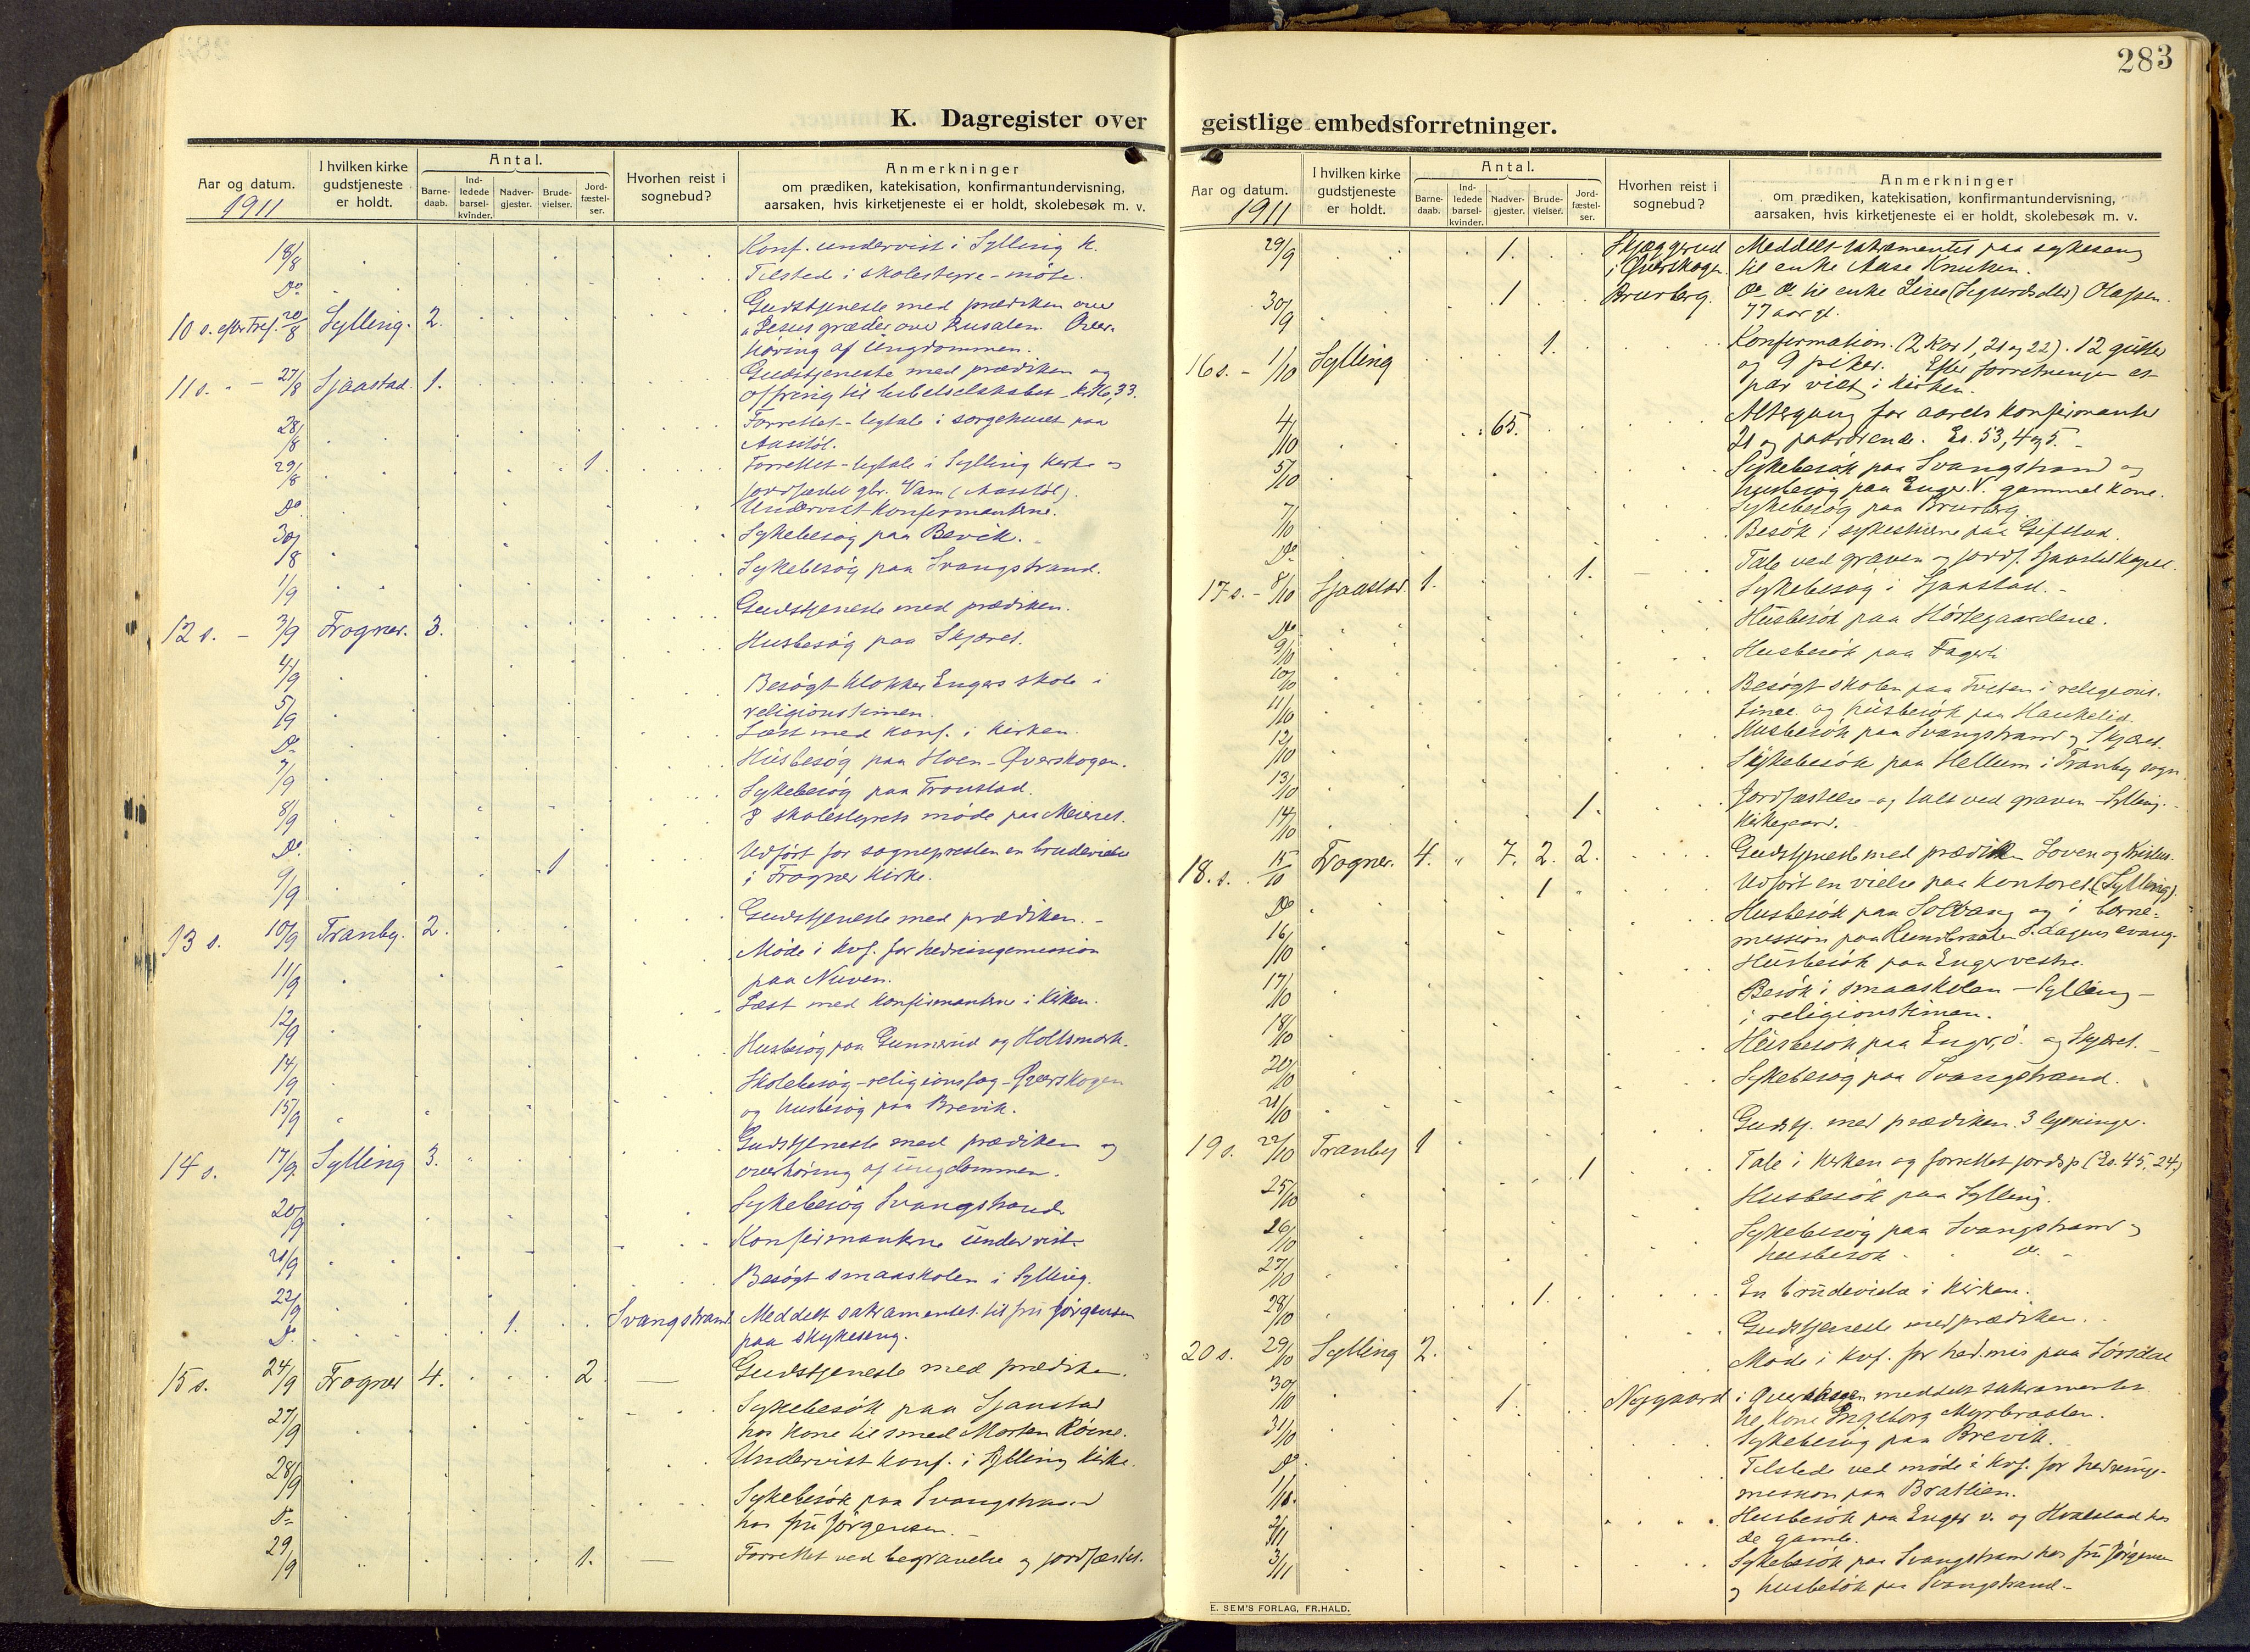 283
K. Dagregister over
geistlige embedsforretninger.
Aar og datum.
1911
I hvilken kirke
gudstjeneste
er holdt.
Antal.
Barne-
daab.
Ind-
ledede
barsel-
kvinder.
Nadver-
gjester.
Brude-
vielser.
Jord-
fæstel-
ser.
Hvorhen reist i
sognebud?
Anmerkninger
om prædiken, katekisation, konfirmantundervisning,
aarsaken, hvis kirketjeneste ei er holdt, skolebesøk m. v.
18/8 Konf. undervist i Sylling K.
Do Tilsted i skolestyre-møte.
10 s. efter Tref. 20/8 Sylling. 2. Gudstjeneste med prædiken over
"Jesus græder over Jerusalem. Over-
høring af ungdommen.
11 s. - - 27/8 Sjaastad. 1. Gudstjeneste med prædiken og
ofring til bibelselskabet - kr. 16,33.
28/8 Forrettet ligtale i sorgehuset paa
Aasstøl.
29/8 1 Forrettet ligtale i Sylling kirke og
jordfæstet gbr. Vam (Aasstøl).
Do. Undervist konfirmanterne.
30/8 Sykebesøg paa Bevik.
1/9 Sykebesøg paa Svangstrand.
12 s. - 3/9 Frogner. 3. Gudstjeneste med prædiken.
4/9 Husbesøg paa Skjæret.
5/9 Besøgt klokker Engers skole i
religionstimen.
Do Læst med konf. i kirken.
7/9 Husbesøg paa Hoen - Øverskogen.
8/9 Sykebesøg paa Tronstad.
Do. I skolestyrets møde paa Meieriet.
9/9 1 Udført for sognepresten en brudevielse
i Frogner kirke.
13 s. 10/9 Tranby. 2. Gudstjeneste med prædiken. -
11/9 Møde i kvf. for hedningemission
paa Nuven.
12/9 Læst med konfirmanterne i kirken.
14/9 Husbesøg paa Gunnerud og Holtsmark.
15/9 Skolebesøg - religionsfag - Øverskogen
og husbesøg paa Brevik.
14 s. 17/9 Sylling 3. Gudstjeneste med prædiken og
overhøring af ungdommen.
20/9 Sykebesøg Svangstrand
21/9 Konfirmanterne undervist.
22/9 Besøgt smaaskolen i Sylling.
Do. 1. Svangstrand. Meddelt sakramentet til fru Jørgensen
paa sykeseng.
15 s. 24/9 Frogner 4. 2 Gudstjeneste med prædiken.
27/9 Sykebesøk paa Sjaastad
hos kone til smed Morten
28/9 Undervist konf. i Sylling kirke.
Do Sykebesøk paa Svangstrand
hos fru Jørgensen. -
29/9 1. Forrettet ved begravelse og jordfæstet.
Aar og datum.
1911
I hvilken kirke
gudstjeneste
er holdt.
Antal.
Barne-
daab.
Ind-
ledede
barsel-
kvinder.
Nadver-
gjester.
Brude-
vielser.
Jord-
fæstel-
ser.
Hvorhen reist i
sognebud?
Anmerkninger
om prædiken, katekisation, konfirmantundervisning,
aarsaken, hvis kirketjeneste ei er holdt, skolebesøk m. v.
29/9 1. Skjæggerud Meddelt sakramentet paa sykeseng
i Øverskogen. til enke Aase Knutsen.
30/9 1 Bruberg. Do Do til enke Lise (Sigurdsdtr) Olafsen.
77 aar gl.
16 s. - 1/10 Sylling 1. Konfirmation. (2 Kor 1, 21 og 22). 12 gutter
og 9 piker. Efter forretningen et
par viet i kirken.
4/10 65. Altergang for aarets konfirmanter
21 og paarørende. Es. 53, 4 og 5. -
5/10 Sykebesøk paa Svangstrand og
husbesøg paa Enger. V. gammel kone.
7/10 Sykebesøg paa Bruberg.
Do Besøk i sykestuerne paa Gifstad.
17 s. - 8/10 Sjaastad. 1. 1. Tale ved graven og jordf. Sjaastad kapel.
Do Sykebesøg i Sjaastad. -
9/10 Husbesøk paa Hørtegaardene.
10/10 Husbesøk paa Fagerli
11/10 Besøgt skolen paa Tveten i religions-
time og husbesøk paa Haukelid.
12/10 Husbesøk paa Svangstrand og Skjæret.
13/10 Sykebesøk paa Hellum i Tranby sogn.
14/10 1. Jordfæstelse og tale ved graven - Sylling
kirkegaard.
18. s. 15/10 Frogner. 4. 7. 2. 2. Gudstjeneste med prædiken Loven og Kristus.
Do 1 Udført en vielse paa kontoret (Sylling).
16/10 Husbesøk paa Solvang og i barne-
mission paa S. dagens evang.
17/10 Husbesøk paa Enger vestre.
18/10 Besøk i smaaskolen - Sylling -
i religionstimen.
20/10 Husbesøk paa Enger, ø. og Skjæret. -
21/10 Sykebesøg paa Svangstrand.
19 s. 22/10 Tranby 1 Gudstj. med prædiken. 3 lysninger.
25/10 1 Tale i kirken og forrettet jordsp. (Es. 45, 24)
26/10 Husbesøk paa Sylling.
27/10 Sykebesøg paa Svangstrand og
husbesøk Do. -
28/10 1. En brudevielse i kirken.
20 s. 29/10 Sylling 2. Gudstjeneste med prædiken.
30/10 Møde i kvf. for hed.mis paa Sørsdal
31/10 1. Nygaard i Øverskogen meddelt sakramentet
til kone Ingeborg Myrbraaten.
Do Sykebesøg paa Brevik.
1/11. Tilstede ved møde i kvf. for hednings-
mission paa Bratlien.
2/11 Husbesøk paa Enger v. og Hvalstad hos
de gamle.
3/11 Sykebesøk paa Svangstrand hos fru Jørgensen
og husbesøk paa Svangstrand. -
E. SEM'S FORLAG, FR.HALD.